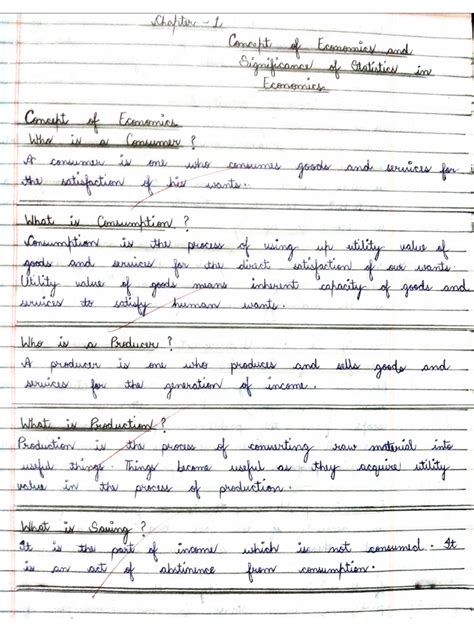 Chapter - 1
Concept of Economics and
Significance of Statistics in
Economics
Concept of Economics
Who is a Consumer ?
A consumer is one who consumes goods and services for
the satisfaction of his wants.
What is Consumption ?
Consumption is the process of using up utility value of
goods and services for the direct satisfaction of our wants.
Utility value of goods means inherent capacity of goods and
services to satisfy human wants.
Who is a Producer ?
A producer is one who produces and sells goods and
services for the generation of income.
What is Production ?
Production is the process of converting raw material into
useful things. Things become useful as they acquire utility
value in the process of production.
What is Saving ?
It is the part of income which is not consumed. It
is an act of abstinence from consumption.